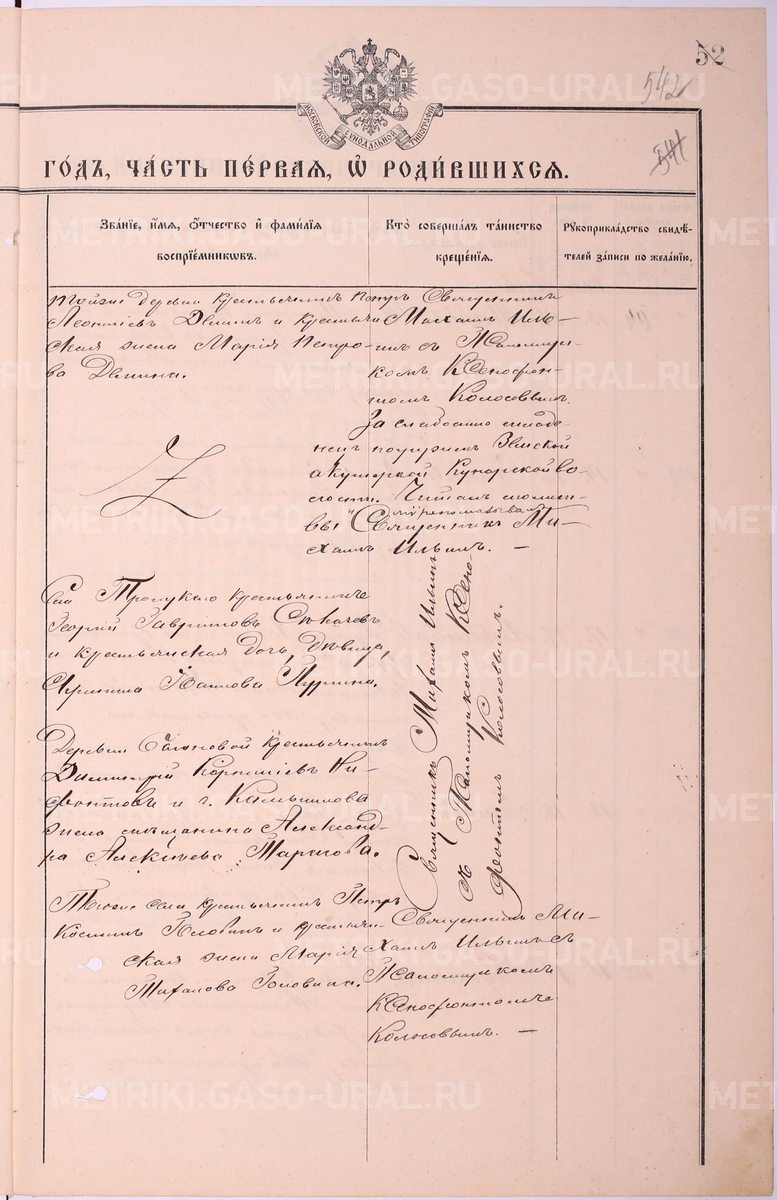 52
542
541
МОСКОВСКОЙ СУНОДАЛЬНОЙ ТИПОГРАФІИ
ГО́ДЪ, ЧА́СТЬ ПЕ́РВАЯ, Ѡ҆ РОДИ́ВШИХСѦ.
Зва́ніе, и҆́мя, ѻ҆́тчество и҆ фами́лія
воспріе́мниковъ.
Кто̀ соверша́лъ та́инство
креще́нія.
Рукоприкла́дство свидѣ́-
телей за́писи по жела́нію.
Тойже деревни крестьянинъ Петръ
Леонтіевъ Деминъ и крестьян
ская жена Марія Петро-
ва Демина.
Священникъ
Михаилъ Иль-
инъ съ Псаломщи-
комъ Ксенофон-
томъ Колосовымъ.
За слабостію младе-
нецъ погруженъ Земской
акушеркой Кунарской во-
лости. Читалъ молит-
вы и мѵропомазывалъ
Священникъ Ми-
хаилъ Ильинъ. —
Села Троицкаго крестьянинъ
Георгій Гавриловъ
и крестьянская дочь, дѣвица,
Павлова
Священникъ Михаилъ Ильинъ
съ Псаломщикомъ Ксено
фонтомъ Колосовымъ.
Деревни крестьянинъ
Димитрій Корниліевъ Ни-
фонтовъ и г. Камышлова
жена мѣщанина Александ-
ра Алексѣева
Тогоже села крестьянинъ Петръ
Косминъ Головинъ и крестьян-
ская жена Марія
Головина.
Священникъ Ми-
хаилъ Ильинъ съ
Псаломщикомъ
Ксенофонтомъ
Колосовымъ. —
METRIKI.GASO-URAL.RU